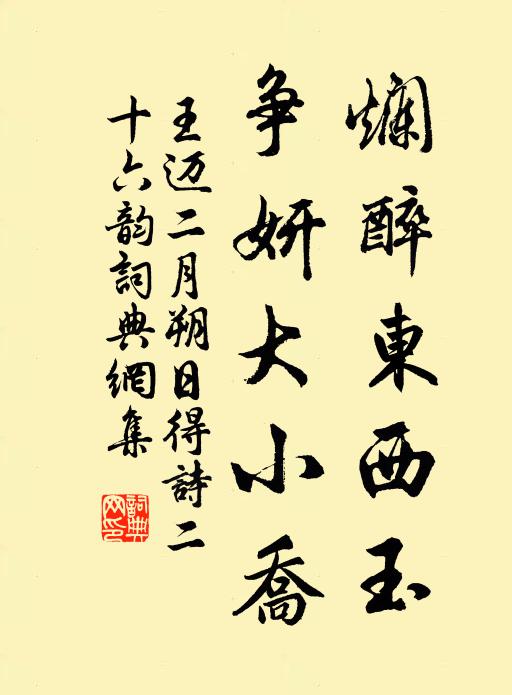 爛醉東西玉
争妍大小喬
王迈二月朔日得詩二
十六韵詞典網集
詞典网印